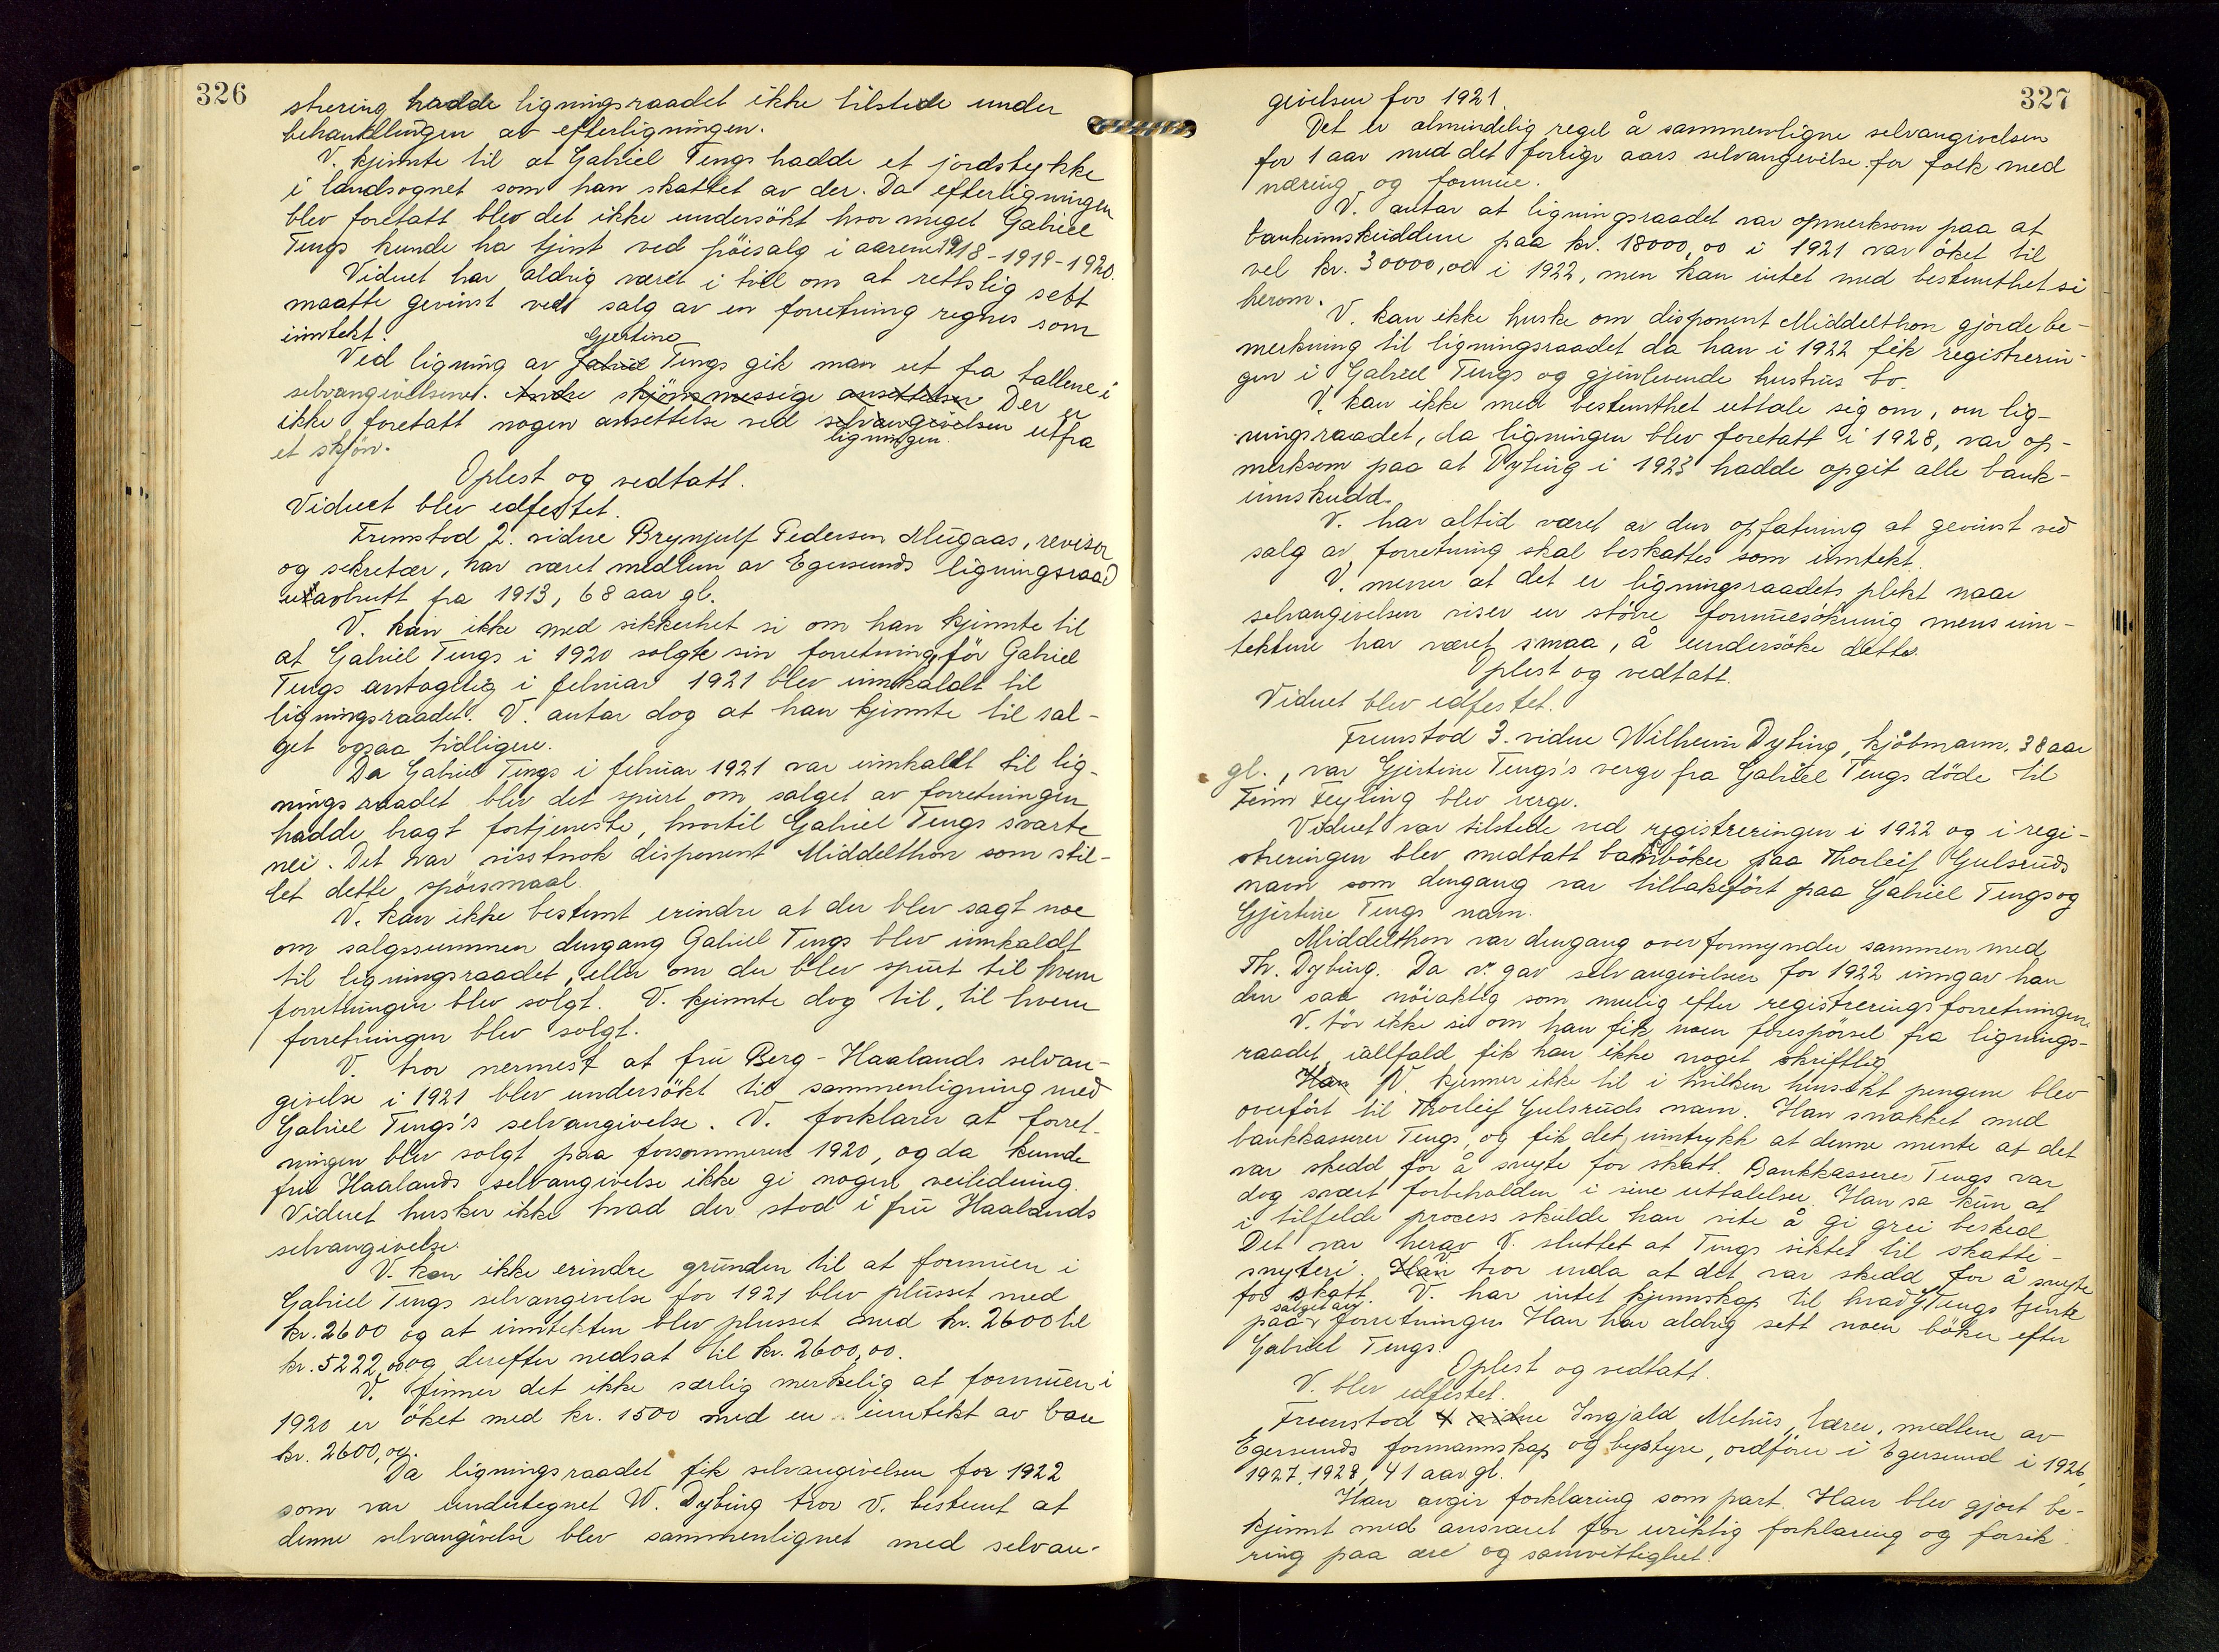 326
strering hadde ligningsraadet ikke tilstede under
behandlingen av efterligningen.
V. kjennte til at Gabriel Tengs hadde et jordstykke
i landsognet som han skattet av der. Da efterligningen
blev foretatt blev det ikke undersökt hvor meget Gabriel
Tengs kunde ha tjent ved höisalg i aarene 1918-1919-1920.
Vidnet har aldrig været i tvil om at rettslig sett
maatte gevinst ved salg av en forretning regnes som
inntekt.
Gjertine
Ved ligning av Gabriel Tengs gik man ut fra tallene i
selvangivelsene. Andre skjönnmessige ansettelser Der er
ikke foretatt nogen ansettelse ved selvangivelsen utfra
ligningen
et skjön.
Oplest og vedtatt.
Vidnet blev edfestet.
Fremstod 2. vidne Brynjulf Pedersen Mugaas, revisor
og sekretær, har været medlem av Egersunds ligningsraad
uavbrutt fra 1913, 68 aar gl.
V. kan ikke med sikkerhet si om han kjennte til
at Gabriel Tengs i 1920 solgte sin forretning, för Gabriel
Tengs antagelig i februar 1921 blev innkaldt til
ligningsraadet. V. antar dog at han kjennte til sal-
get ogsaa tidligere.
Da Gabriel Tengs i februar 1921 var innkaldt til lig-
ningsraadet blev det spurt om salget av forretningen
hadde bragt fortjeneste, hvortil Gabriel Tengs svarte
nei. Det var visstnok disponent Middelthon som stil-
let dette spörsmaal.
V. kan ikke bestemt erindre at der blev sagt noe
om salgssummen dengang Gabriel Tengs blev innkaldt
til ligningsraadet, eller om der blev spurt til hvem
forretningen blev solgt. V. kjennte dog til, til hvem
forretningen blev solgt.
V. tror nermest at fru Berg-Haalands selvan-
givelse i 1921 blev undersökt til sammenligning med
Gabriel Tengs's selvangivelse. V. forklarer at forret-
ningen blev solgt paa forsommeren 1920, og da kunde
fru Haalands selvangivelse ikke gi nogen veiledning.
Vidnet husker ikke hvad der stod i fru Haalands
selvangivelse.
V. kan ikke erindre grunden til at formuen i
Gabriel Tengs selvangivelse for 1921 blev plusset med
kr. 2600 og at inntekten blev plusset med kr. 2600 til
kr. 5222,00 og derefter nedsat til kr. 2600,00.
V. finner det ikke særlig merkelig at formuen i
1920 er öket med kr. 1500 med en inntekt av bare
kr. 2600,00.
Da ligningsraadet fik selvangivelsen for 1922
som var undertegnet W. Dybing tror v. bestemt at
denne selvangivelse blev sammenlignet med selvan-
327
givelsen for 1921.
Det er almindelig regel å sammenligne selvangivelsen
for 1 aar med det forrige aars selvangivelse for folk med
næring og formue.
V. antar at ligningsraadet var opmerksom paa at
bankinnskuddene paa kr. 18000,00 i 1921 var öket til
vel kr. 30000,00 i 1922, men kan intet med bestemthet si
herom.
V. kan ikke huske om disponent Middelthon gjorde be-
merkning til ligningsraadet da han i 1922 fik registrerin-
gen i Gabriel Tengs og gjenlevende hustrus bo.
V. kan ikke med bestemthet uttale sig om, om lig-
ningsraadet, da ligningen blev foretatt i 1928, var op-
merksom paa at Dybing i 1923 hadde opgit alle bank-
innskudd.
V. har altid været av den opfatning at gevinst ved
salg av forretning skal beskattes som inntekt.
V. mener at det er ligningsraadets plikt naar
selvangivelsen viser en större formuesökning mens inn-
tektene har været smaa, å undersöke dette.
Oplest og vedtatt.
Vidnet blev edfestet.
Fremstod 3. vidne Wilhelm Dybing, kjöbmann, 38 aar
gl., var Gjertine Tengs's verge fra Gabriel Tengs döde til
Feyling blev verge.
Vidnet var tilstede ved registreringen i 1922 og i regi-
streringen blev medtatt bankböker paa Thorleif Gulsruds
navn som dengang var tilbakefört paa Gabriel Tengs og
Gjertine Tengs navn.
Middelthon var dengang overformynder sammen med
Th. Dybing. Da v. gav selvangivelsen for 1922 inngav han
den saa nöiaktig som mulig efter registreringsforretningen.
V. tör ikke si om han fik noen forespörsel fra lignings-
raadet, iallfald fik han ikke noget skriftlig.
Han V. kjenner ikke til i hvilken hensikt pengene blev
overfört til Thorleif Gulsruds navn. Han snakket med
bankkasserer Tengs, og fik det inntrykk at denne mente at det
var skedd for å snyte for skatt. Bankkasserer Tengs var
dog svært forbeholden i sine uttalelser. Han sa kun at
i tilfelde process skulde han vite å gi grei besked
Det var herav V. sluttet at Tengs siktet til skatte-
snyteri. Han V tror enda at det var skedd for å snyte
for skatt. V. har intet kjennskap til hvad G Tengs tjente
salget av
paa forretningen Han har aldrig sett noen böker efter
Gabriel Tengs.
Oplest og vedtatt.
V. blev edfestet.
Fremstod 4 vidne Ingjald Mehus, lærer, medlem av
Egersunds formannskap og bystyre, ordförer i Egersund i 1926,
1927, 1928, 41 aar gl.
Han avgir forklaring som part. Han blev gjort be-
kjennt med ansvaret for uriktig forklaring og forsik-
ring paa ære og samvittighet.